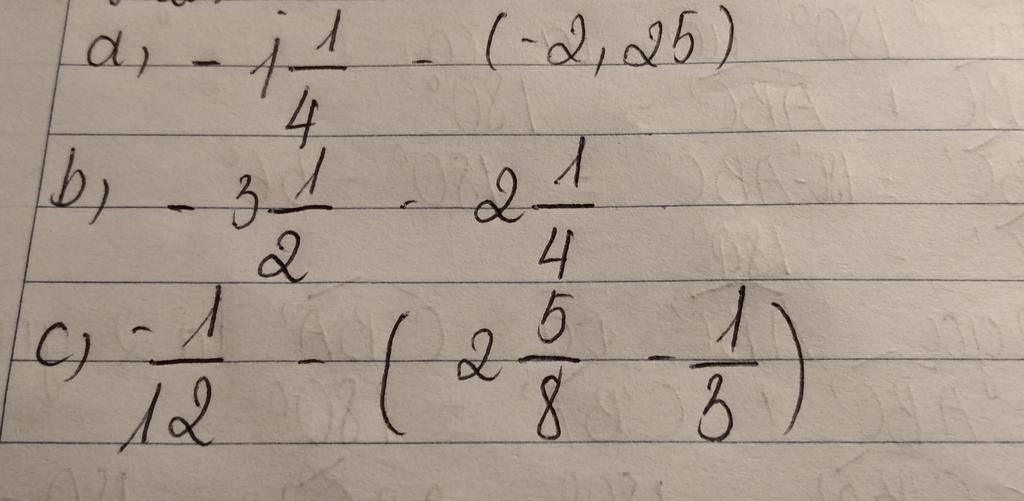 a, - 1 1/4 - (-2,25)
b, - 3 1/2 - 2 1/4
c) -1/12 - ( 2 5/8 - 1/3 )